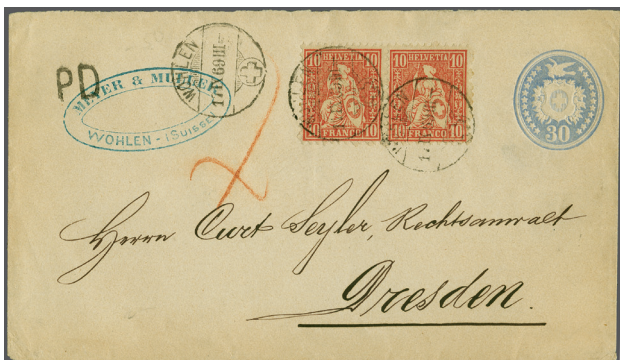 PD
MEYER & MULLER
WOHLEN - (Suisse)
WOHLEN
17 II 69 III
10 HELVETIA 10
10 FRANCO 10
10 HELVETIA 10
10 FRANCO 10
30
Herrn Curt Seyler, Rechtsanwalt
Dresden.